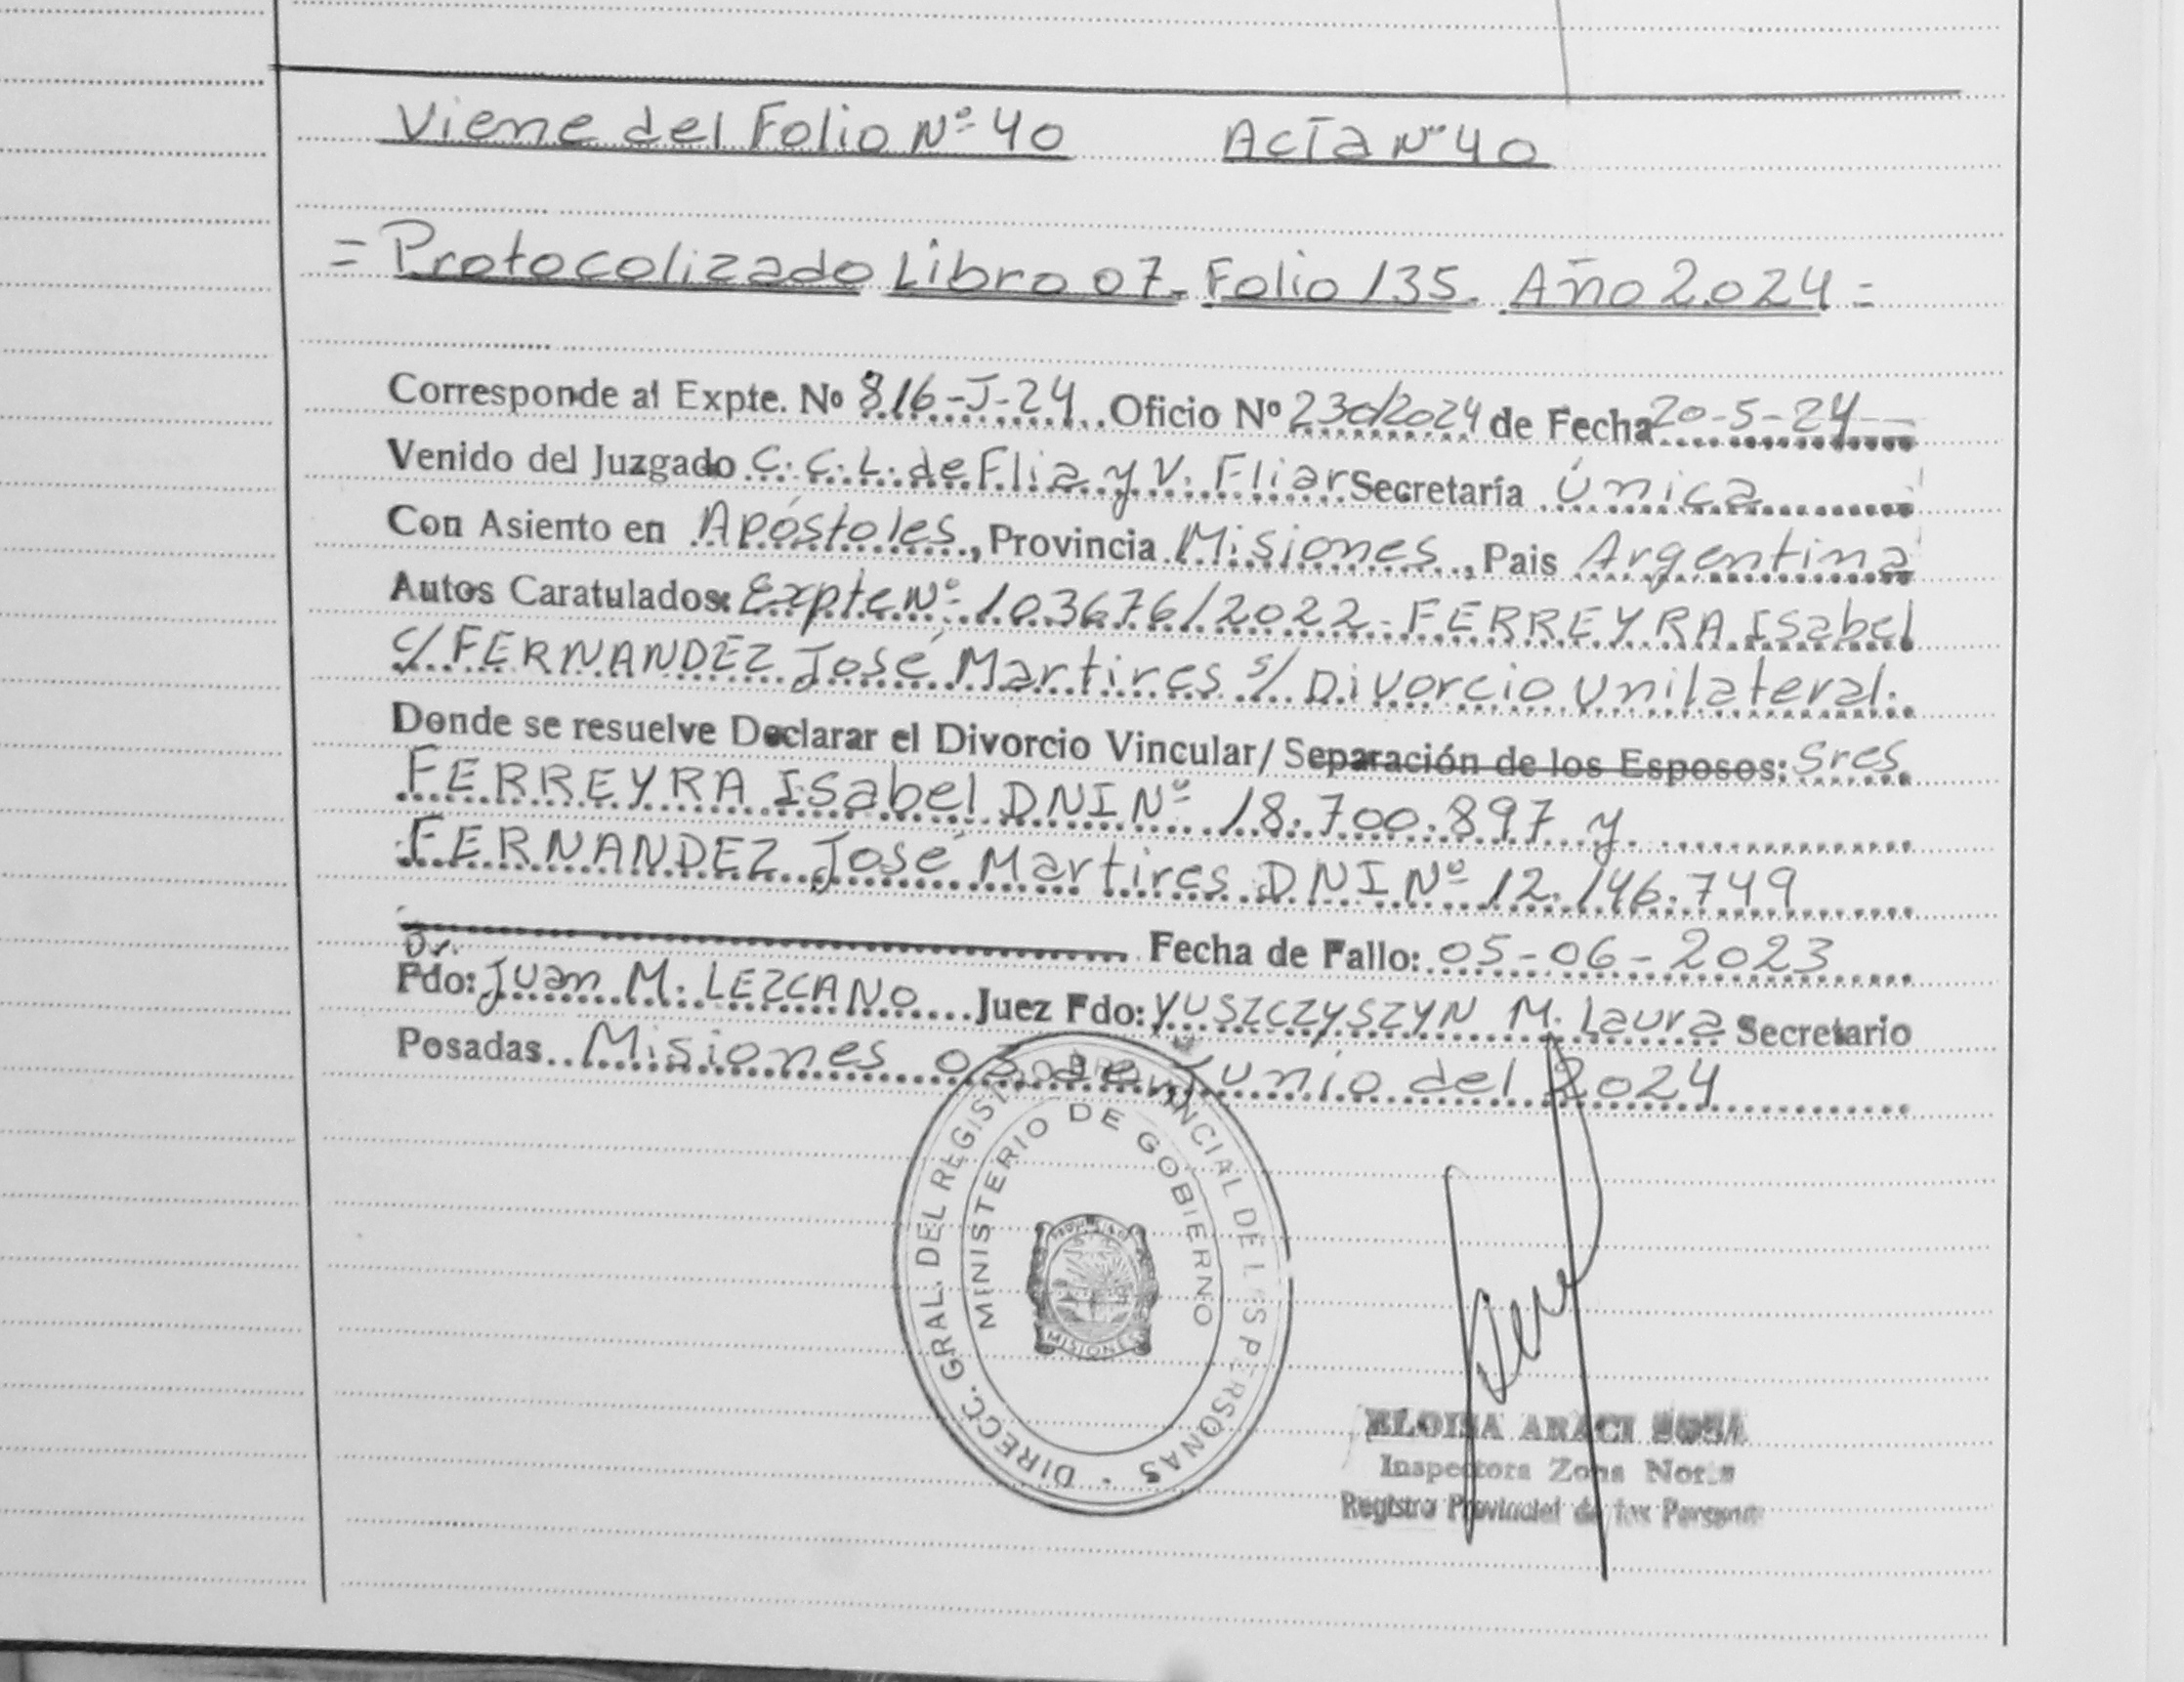 Viene del Folio Nº 40 Acta Nº 40
= Protocolizado Libro 07- Folio 135. Año 2.024 =
Corresponde al Expte. Nº 816-J-24 Oficio Nº 230/2024 de Fecha 20-5-24
Venido del Juzgado C. C. L. de Flia y V. Fliar Secretaría Única
Con Asiento en Apóstoles, Provincia Misiones, Pais Argentina
Autos Caratulados: Expte Nº 103676/2022- FERREYRA Isabel
c/ FERNANDEZ José Martires s/ Divorcio Unilateral.
Donde se resuelve Declarar el Divorcio Vincular/ Separación de los Esposos: Sres
FERREYRA Isabel DNI Nº 18.700.897 y
FERNANDEZ José Martires DNI Nº 12.146.749
Fecha de Fallo: 05-06-2023
Dr.
Fdo: Juan M. LEZCANO Juez Fdo: YUSZCZYSZYN M. Laura Secretario
Posadas Misiones 03 de Junio del 2024
DIRECC. GRAL. DEL REGISTRO PROVINCIAL DE LAS PERSONAS
MINISTERIO DE GOBIERNO
MISIONES
ELOISA ARACI SOSA
Inspectora Zona Norte
Registro Provincial de las Personas